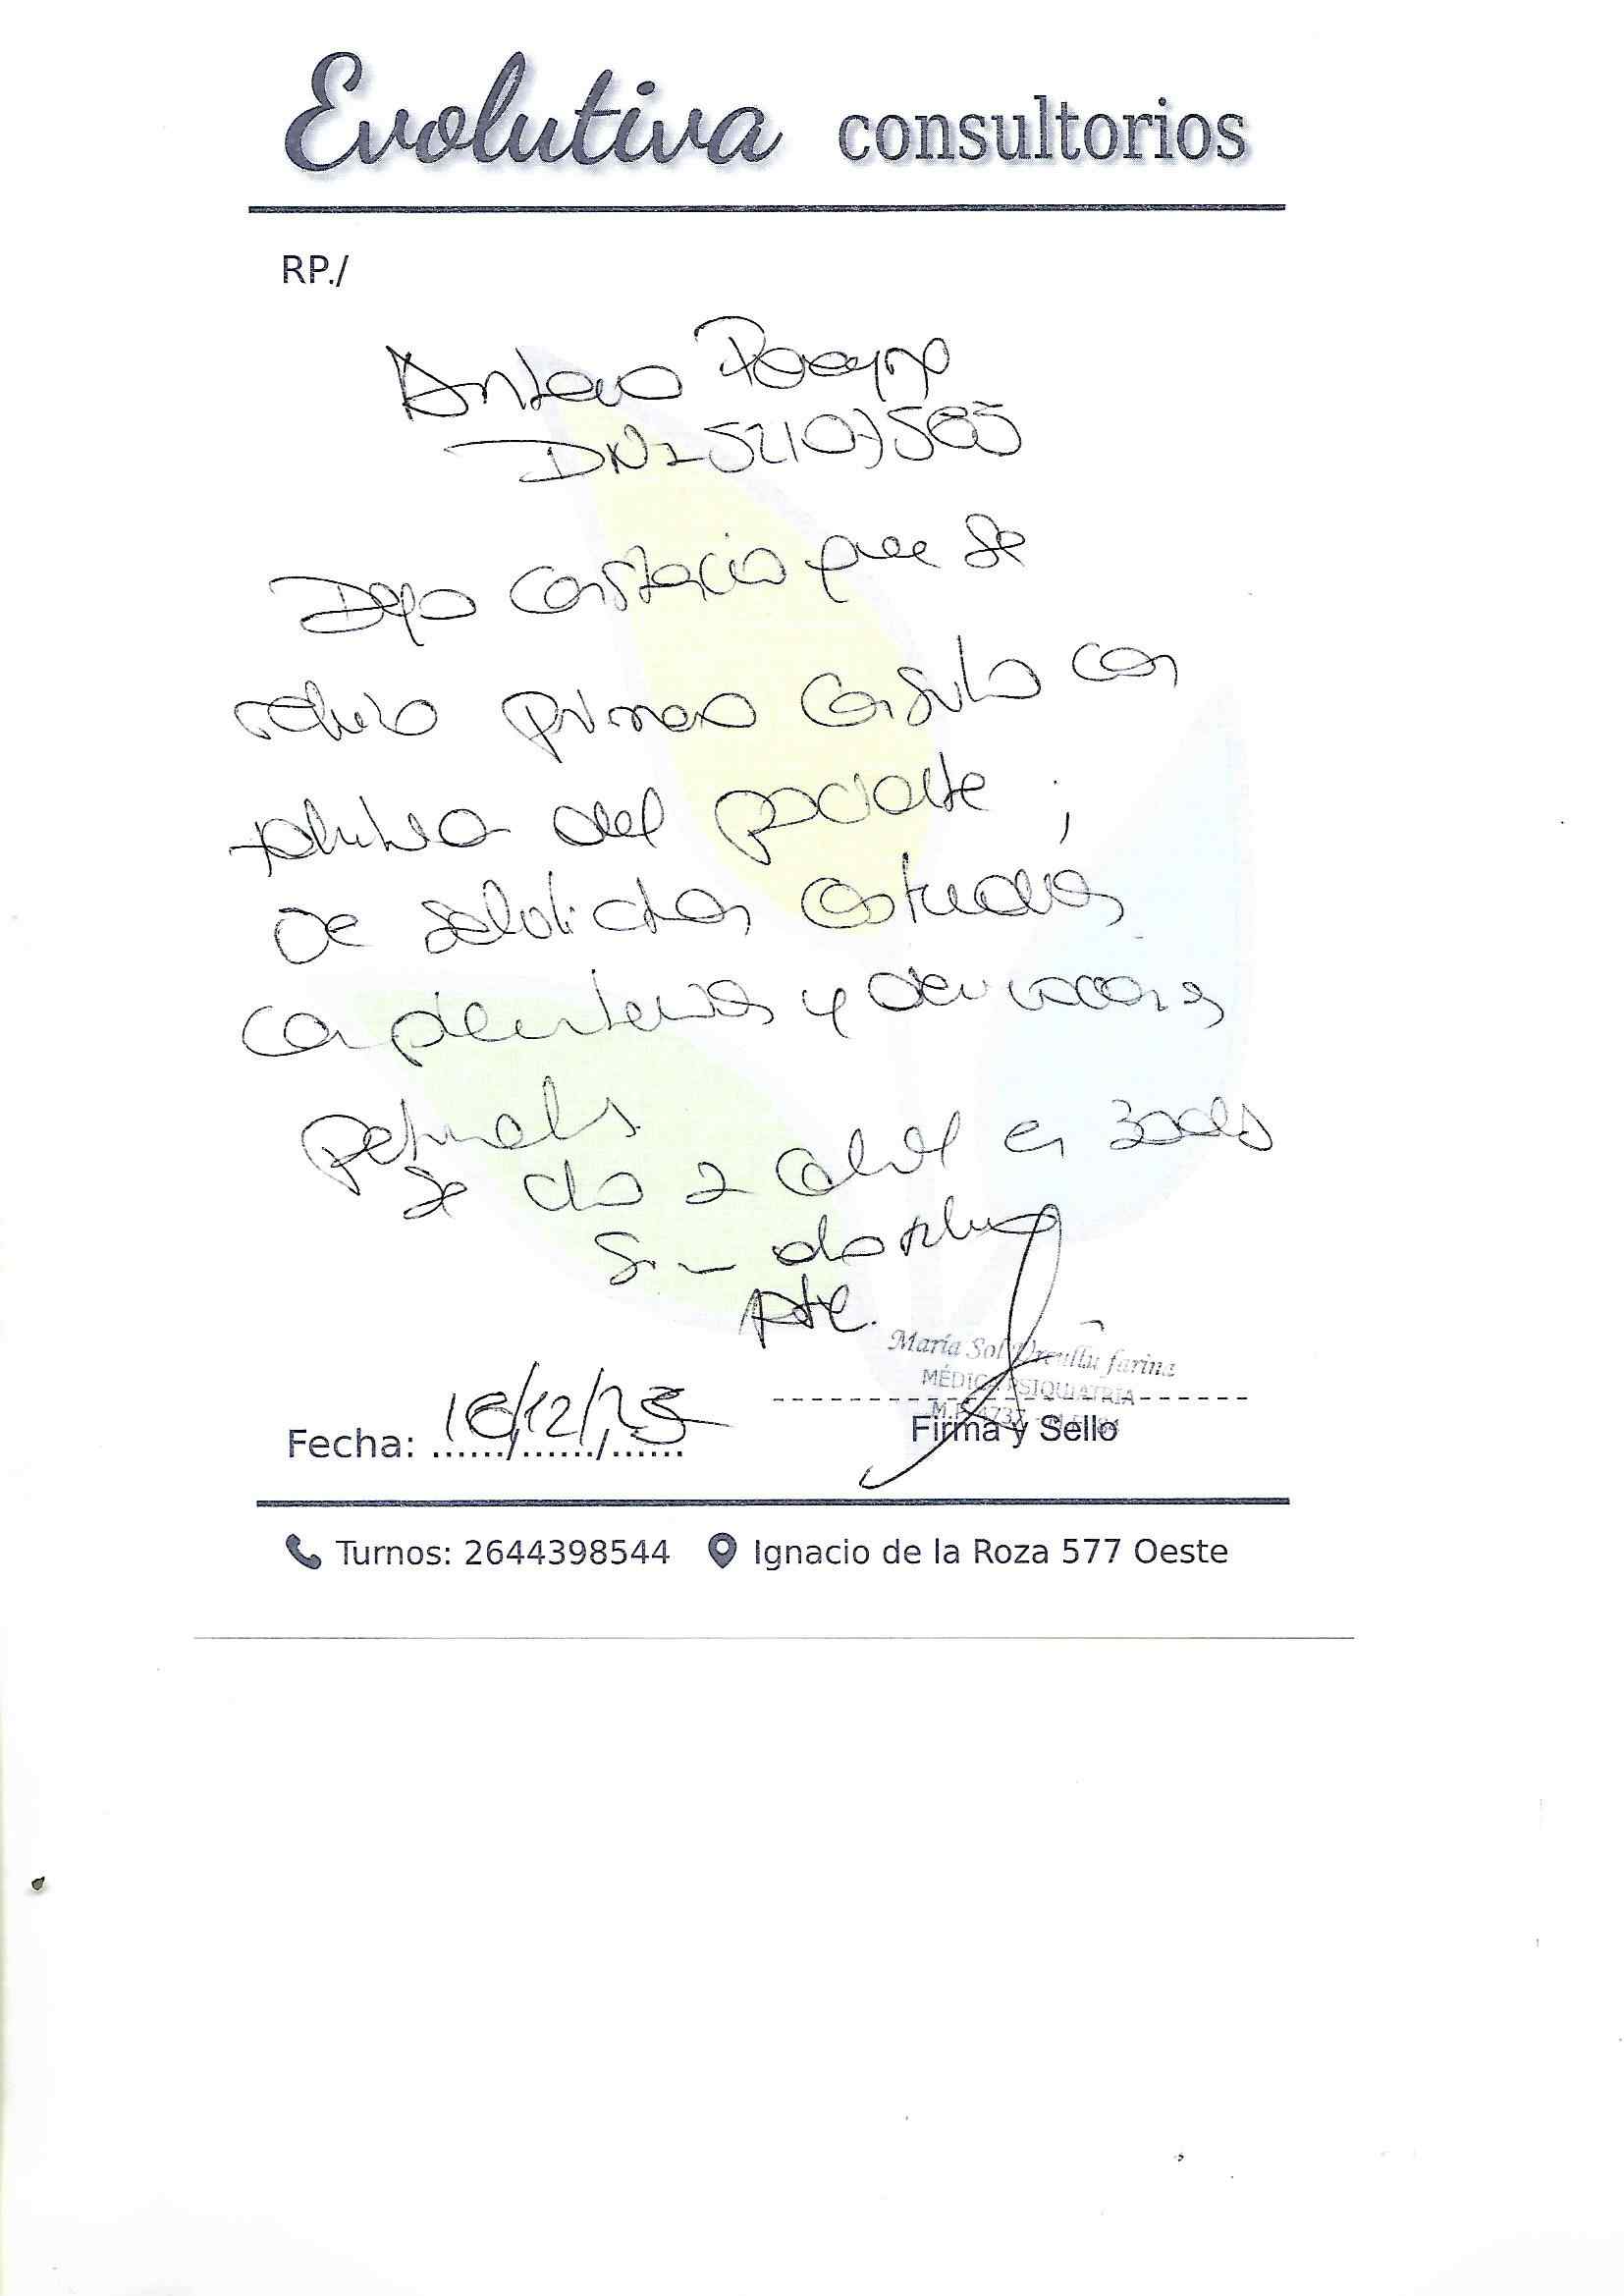 Evolutiva consultorios
RP./
Antero
DNI 52107585
Dejo constancia que se
realizo primera consulta con
familia del paciente,
se solicitan estudios
complementarios y derivaciones
pertinentes.
Se da 2 control en 30 dias
Sin
Atte.
María Sol Farina
MÉDICA PSIQUIATRIA
Fecha: 16/12/25
Firma y Sello
Turnos: 2644398544 Ignacio de la Roza 577 Oeste